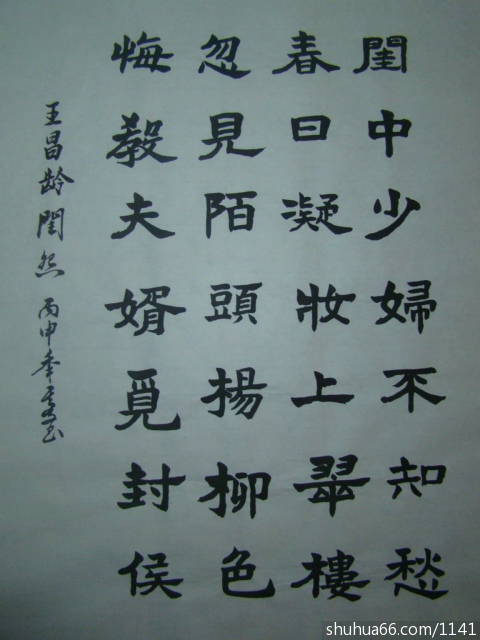 閨中少婦不知愁
春日凝妝上翠樓
忽見陌頭揚柳色
悔教夫婿覓封侯
王昌龄閨怨 丙申年
shuhua66.com/1141